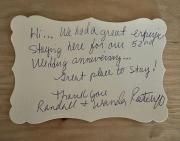 Hi... We had a great
Staying here for our 52nd
Wedding anniversary...
Great place to Stay!
Thank you
Randall + Wanda